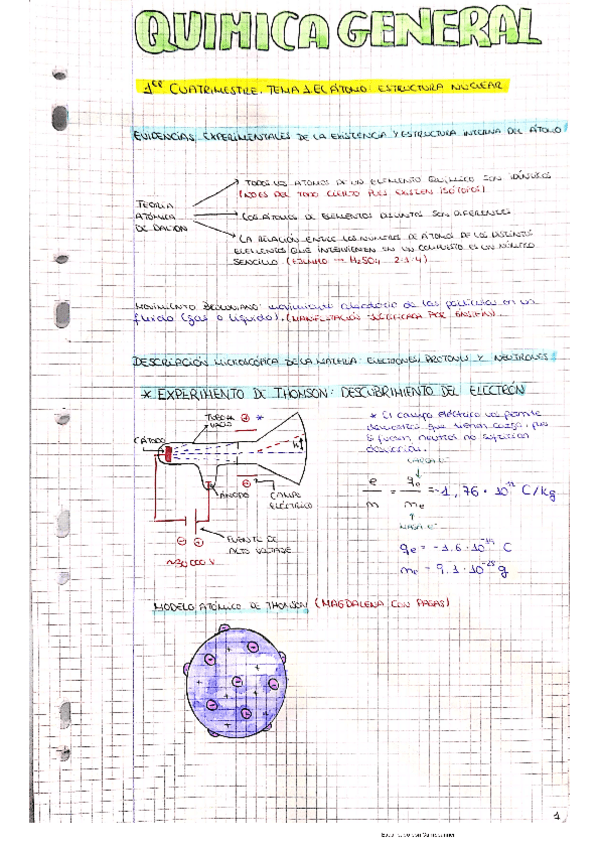 QUIMICA GENERAL
1er CUATRIMESTRE. TEMA 1 EL ÁTOMO: ESTRUCTURA NUCLEAR
EVIDENCIAS EXPERIMENTALES DE LA EXISTENCIA Y ESTRUCTURA INTERNA DEL ÁTOMO
TEORIA
ATÓMICA
DE DALTON
TODOS LOS ÁTOMOS DE UN ELEMENTO QUÍMICO SON IDÉNTICOS
(NO ES DEL TODO CIERTO PUES EXISTEN ISÓTOPOS)
LOS ÁTOMOS DE ELEMENTOS DISTINTOS SON DIFERENTES
LA RELACIÓN ENTRE LOS NÚMEROS DE ÁTOMOS DE LOS DISTINTOS
ELEMENTOS QUE INTERVIENEN EN UN COMPUESTO ES UN NÚMERO
SENCILLO (EJEMPLO → H2SO4 2:1:4)
MOVIMIENTO BROWNIANO: movimiento aleatorio de las partículas en un
fluido (gas o líquido). (MANIFESTACIÓN JUSTIFICADA POR EINSTEIN)
DESCRIPCIÓN MICROSCÓPICA DE LA MATERIA: ELECTRONES, PROTONES Y NEUTRONES
* EXPERIMENTO DE THOMSON: DESCUBRIMIENTO DEL ELECTRÓN
TUBO DE
VACÍO
+ *
CÁTODO
h
ÁNODO
CAMPO
ELÉCTRICO
FUENTE DE
ALTO VOLTAJE
~30 000 V
* El campo eléctrico nos permite
demostrar que tienen carga, pues
si fuesen neutros no sufrirían
desviación.
CARGA e-
e/m = qe/me = -1,76 · 10^11 C/kg
MASA e-
qe = -1,6 · 10^-19 C
me = 9,1 · 10^-28 g
MODELO ATÓMICO DE THOMSON (MAGDALENA CON PASAS)
1